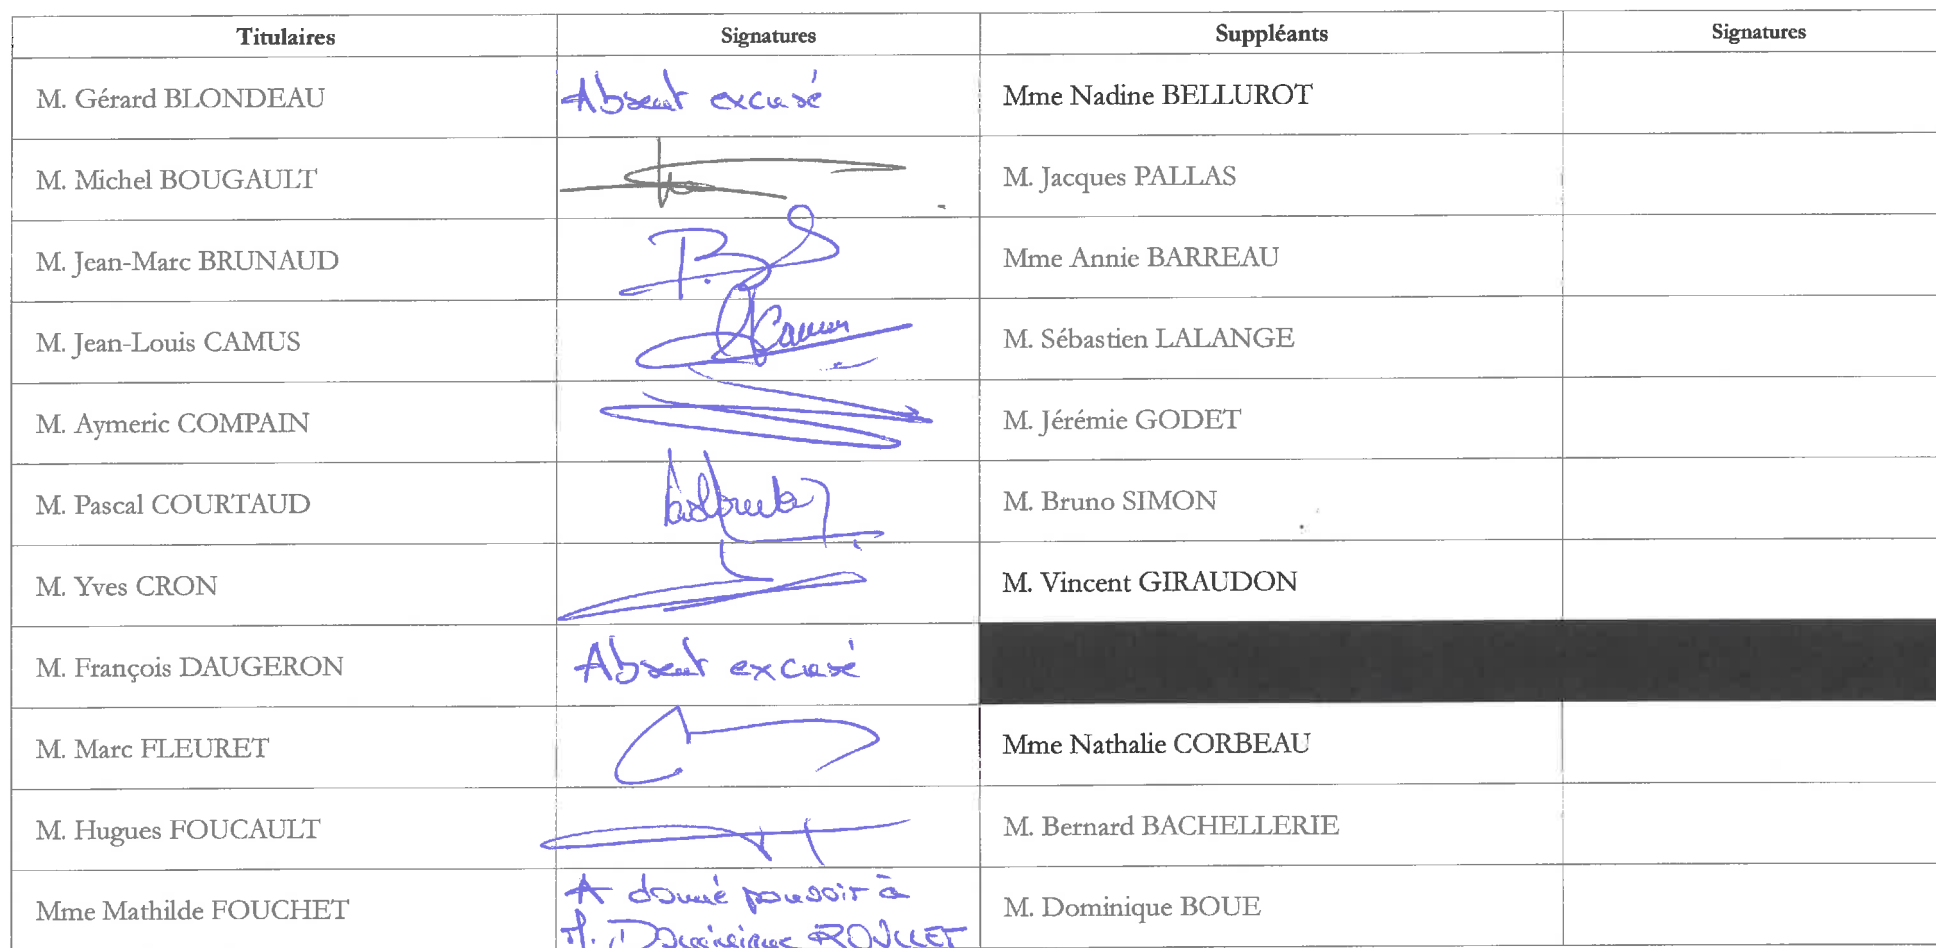 Titulaires Signatures Suppléants Signatures
M. Gérard BLONDEAU Absent excusé Mme Nadine BELLUROT
M. Michel BOUGAULT M. Jacques PALLAS
M. Jean-Marc BRUNAUD Mme Annie BARREAU
M. Jean-Louis CAMUS Camus M. Sébastien LALANGE
M. Aymeric COMPAIN M. Jérémie GODET
M. Pascal COURTAUD M. Bruno SIMON
M. Yves CRON M. Vincent GIRAUDON
M. François DAUGERON Absent excusé
M. Marc FLEURET Mme Nathalie CORBEAU
M. Hugues FOUCAULT M. Bernard BACHELLERIE
Mme Mathilde FOUCHET A donné pouvoir à M. Dominique BOUE
M. Dominique ROULLET